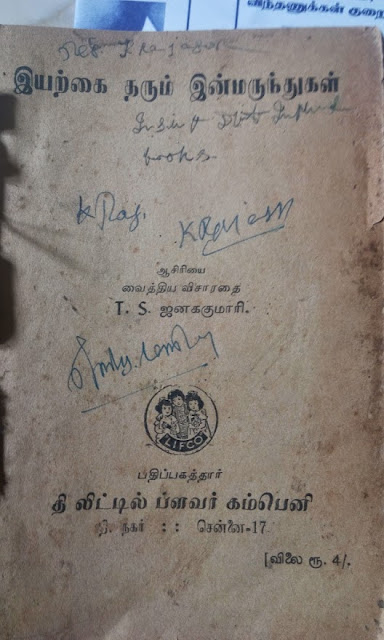 விந்தணுக்கள் குறை
இயற்கை தரும் இன்மருந்துகள்
books
K Raj.
K RAJESH
ஆசிரியை
வைத்திய விசாரதை
T. S. ஜனககுமாரி.
LIFCO
பதிப்பகத்தார்
தி லிட்டில் ப்ளவர் கம்பெனி
தி. நகர் : : சென்னை-17
[விலை ரூ. 4/.